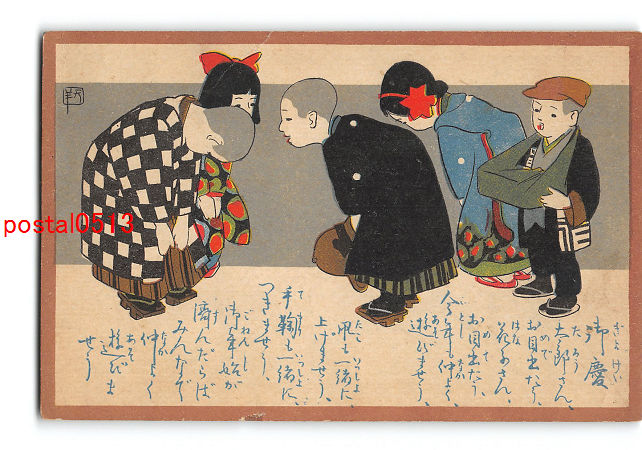 御慶
太郎さん、
お目出たう、
花子さん、
お目出たう、
今年も仲よく
遊びませう、
凧も一緒に
上げませう、
手鞠も一緒に、
つきませう。
御年始が
濟んだらば
みんなで
仲よく
遊びませう
postal0513